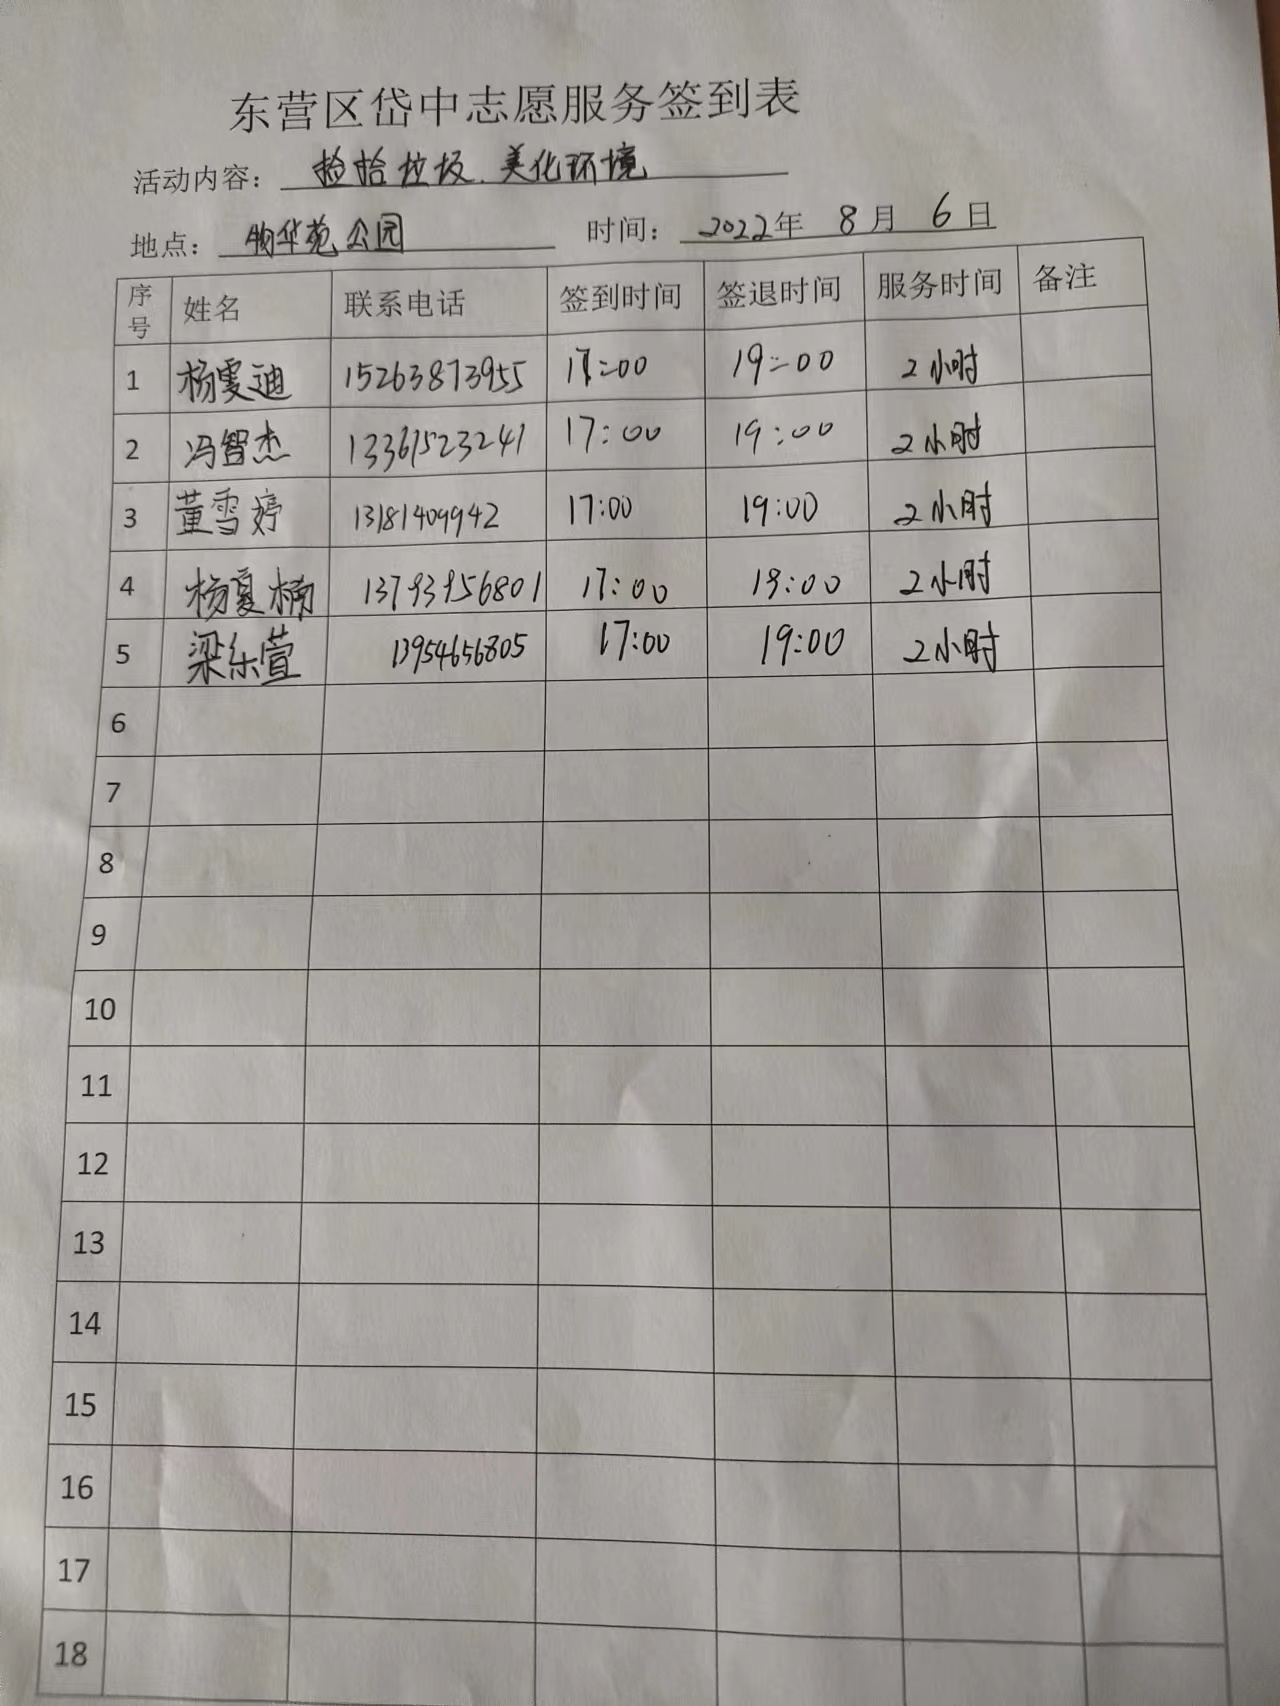 东营区岱中志愿服务签到表
活动内容：捡拾垃圾、美化环境
地点：物华苑公园 时间：2022年 8月 6日
序号 姓名 联系电话 签到时间 签退时间 服务时间 备注
1 杨雯迪 15263873955 17:00 19:00 2小时
2 冯智杰 13361523241 17:00 19:00 2小时
3 董雪婷 13181409942 17:00 19:00 2小时
4 杨夏楠 13793956801 17:00 19:00 2小时
5 梁乐萱 13954656805 17:00 19:00 2小时
6
7
8
9
10
11
12
13
14
15
16
17
18